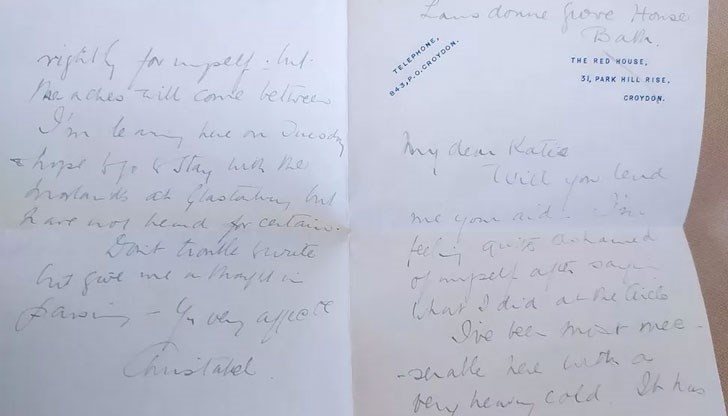 Lansdowne Grove House
Bath.
TELEPHONE,
843, P.O. CROYDON.
THE RED HOUSE,
51, PARK HILL RISE,
CROYDON.
My dear Katie
Will you lend
me your aid. I'm
feeling quite ashamed
of myself after saying
what I did at the Circle
I've been most mee-
-serable here with a
very heavy cold. It has
rightly for myself: but
the aches will come between
I'm leaving here on Tuesday
& hope to go & stay with the
at Glastonbury but
have not heard for certain.
Dont trouble to write
but give me a thought in
passing – Yr very affecte
Christabel.